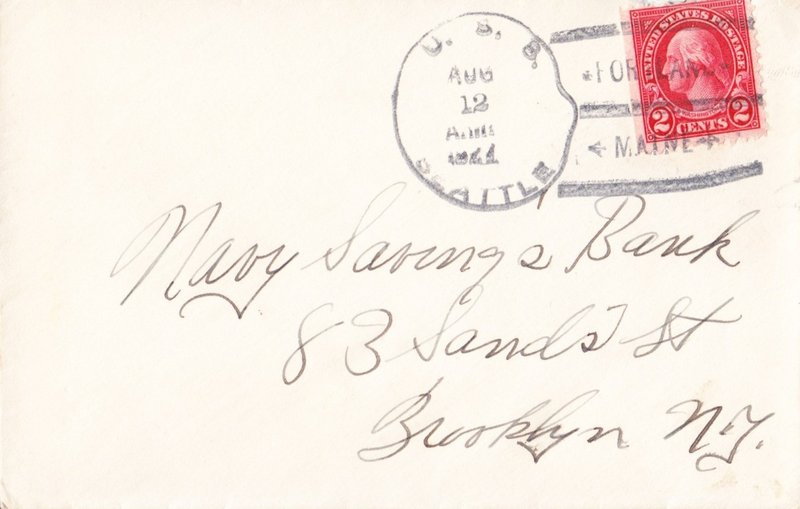 U. S. S.
AUG
12
SEATTLE
PORTLAND
MAINE
UNITED STATES POSTAGE
WASHINGTON
2 CENTS 2
Navy Savings Bank
83 Sands St
Brooklyn N.Y.